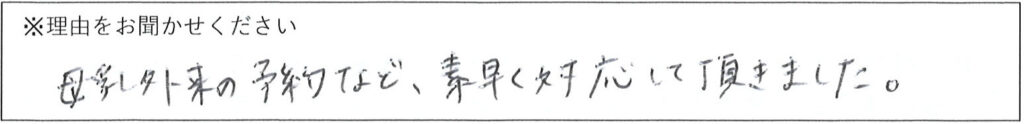 ※理由をお聞かせください
母乳外来の予約など、素早く対応して頂きました。